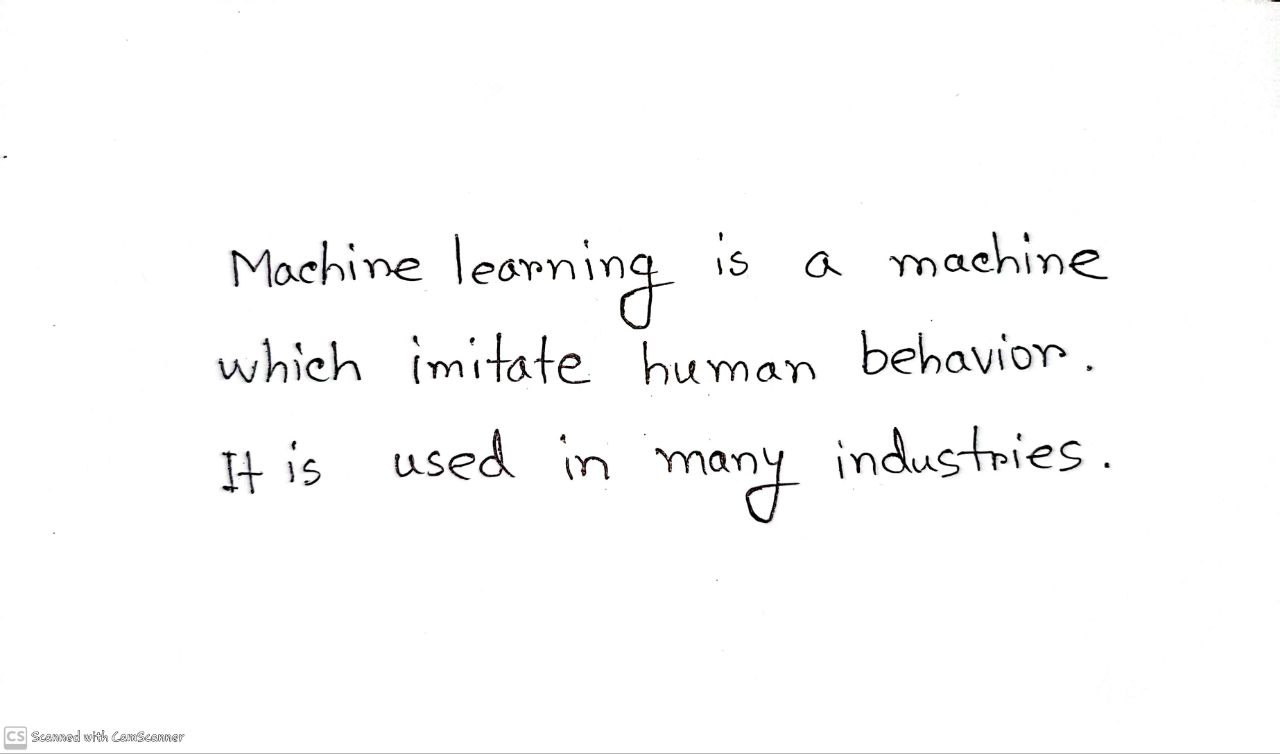 Machine learning is a machine
which imitate human behavior.
It is used in many industries.
CS Scanned with CamScanner